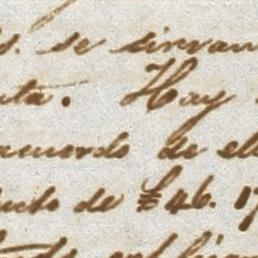 s. se sirvan
nta. Hay
acuerdo de el
ucto de £46. 17